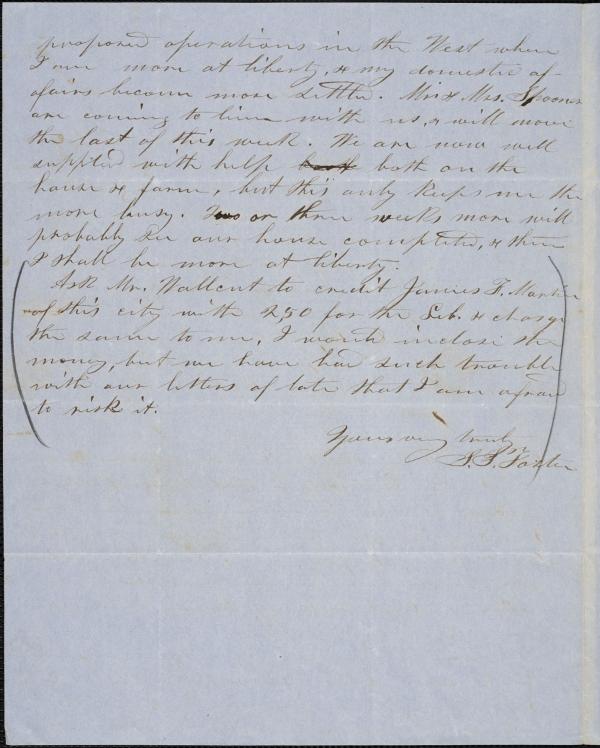 proposed operations in the West when
I am more at liberty, & my domestic af-
fairs become more settled. Mr & Mrs. Spooner
are coming to live with us, & will move
the last of this week. We are now well
supplied with help both on the
house & farm, but this only keeps me the
more busy. Two or three weeks more will
probably see our house completed, & then
I shall be more at liberty.
Ask Mr. Wallcut to credit James F. Martin
of this city with 2,50 for the Lib. & charge
the same to me. I would inclose the
money, but we have had such trouble
with our letters of late that I am afraid
to risk it.
Yours very truly
S. S. Foster